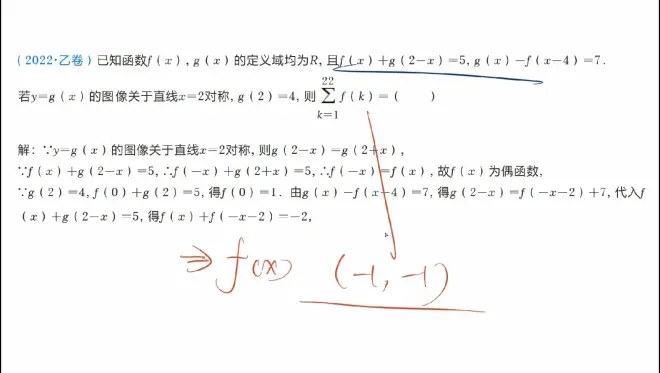 (2022·乙卷)已知函数f(x),g(x)的定义域均为R,且f(x)+g(2-x)=5,g(x)-f(x-4)=7.
若y=g(x)的图像关于直线x=2对称,g(2)=4,则 \sum_{k=1}^{22} f(k)=(　　)
解:∵y=g(x)的图像关于直线x=2对称,则g(2-x)=g(2+x),
∵f(x)+g(2-x)=5,∴f(-x)+g(2+x)=5,∴f(-x)=f(x),故f(x)为偶函数,
∵g(2)=4,f(0)+g(2)=5,得f(0)=1. 由g(x)-f(x-4)=7,得g(2-x)=f(-x-2)+7,代入f
(x)+g(2-x)=5,得f(x)+f(-x-2)=-2,
⇒ f(x) (-1,-1)